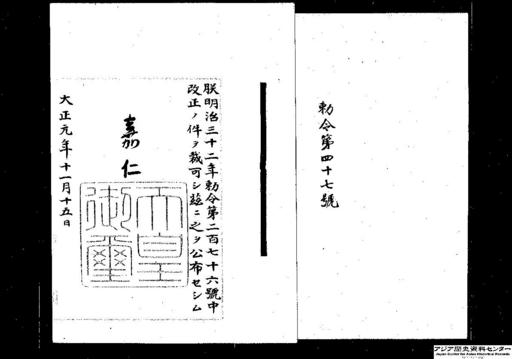 勅令第四十七號
朕明治三十二年勅令第二百七十六號中
改正ノ件ヲ裁可シ玆ニ之ヲ公布セシム
嘉仁
天皇御璽
大正元年十一月十五日
アジア歴史資料センター
Japan Center for Asian Historical Records